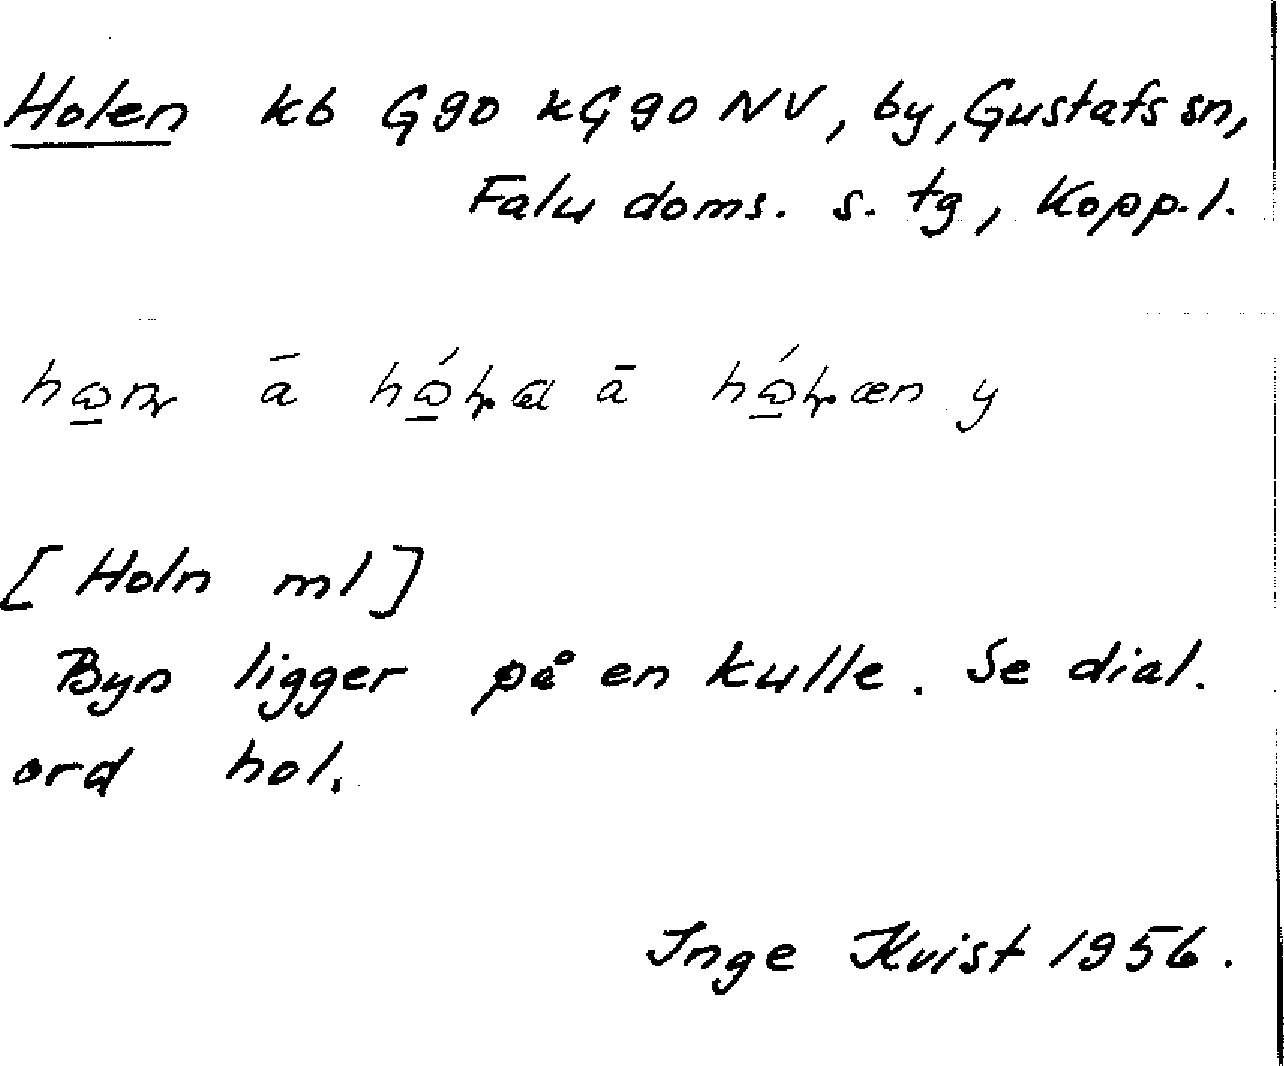 Holen kb G 90 kG 90 NV, by, Gustafs sn,
Falu doms. s. tg, Kopp. l.
ā ā y
[Holn ml]
Byn ligger på en kulle. Se dial.
ord hol.
Inge Kvist 1956.